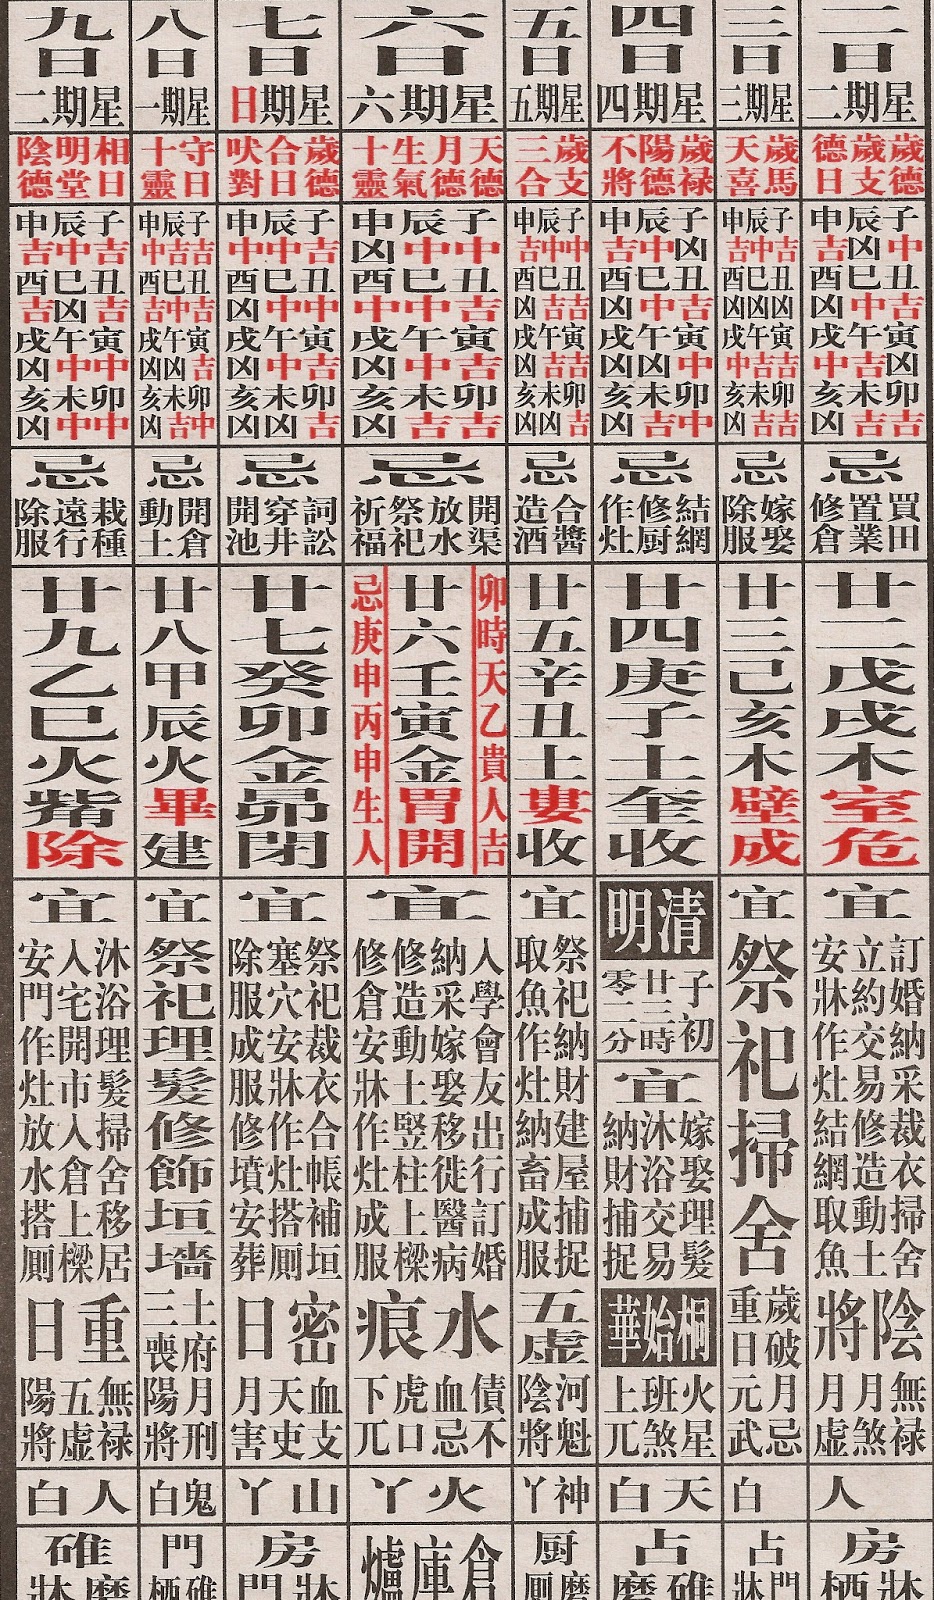 二日
星期二
歲德
歲支
德日
子中丑吉寅凶卯吉
辰凶巳中午吉未吉
申吉酉凶戌中亥凶
忌
買田
置業
修倉
廿二戊戌木室危
宜
訂婚納采裁衣掃舍
立約交易修造動土
安牀作灶結網取魚
陰將
無祿
月煞
月虛
人
房牀
栖
三日
星期三
歲馬
天喜
子吉丑凶寅吉卯吉
辰中巳凶午吉未吉
申吉酉凶戌中亥凶
忌
嫁娶
除服
廿三己亥木壁成
宜
祭祀掃舍
歲破
重日
月忌
元武
白
占門
牀
四日
星期四
歲祿
陽德
不將
子凶丑吉寅中卯中
辰中巳中午凶未吉
申吉酉凶戌凶亥凶
忌
結網
修厨
作灶
廿四庚子土奎收
清明
子初
廿三時
零二分
宜
嫁娶理髮
沐浴交易
納財捕捉
桐始華
火星
班煞
上兀
天白
占碓
磨
五日
星期五
歲支
三合
子中丑吉寅吉卯吉
辰中巳吉午吉未凶
申吉酉凶戌凶亥凶
忌
合醬
造酒
廿五辛丑土婁收
宜
祭祀納財建屋捕捉
取魚作灶納畜成服
五虛
河魁
陰將
神丫
厨磨
厠
六日
星期六
天德
月德
生氣
十靈
子中丑吉寅吉卯吉
辰中巳中午中未吉
申凶酉中戌凶亥凶
忌
開渠
放水
祭祀
祈福
卯時天乙貴人吉
廿六壬寅金胃開
忌庚申丙申生人
宜
入學會友出行訂婚
納采嫁娶移徙醫病
修造動土竪柱上樑
修倉安牀作灶成服
水痕
債不
血忌
虎口
下兀
火丫
倉庫爐
七日
星期日
歲德
合日
吠對
子吉丑中寅吉卯吉
辰中巳中午中未凶
申中酉凶戌凶亥凶
忌
詞訟
穿井
開池
廿七癸卯金昴閉
宜
祭祀裁衣合帳補垣
塞穴安牀作灶搭厠
除服成服修墳安葬
密日
血支
天吏
月害
山丫
房牀
門
八日
星期一
守日
十靈
子吉丑吉寅吉卯中
辰吉巳中午凶未吉
申中酉吉戌凶亥凶
忌
開倉
動土
廿八甲辰火畢建
宜
祭祀理髮修飾垣墻
土府
三喪
月刑
陽將
鬼白
門碓
栖
九日
星期二
相日
明堂
陰德
子吉丑吉寅中卯中
辰中巳凶午中未中
申吉酉吉戌凶亥凶
忌
栽種
遠行
除服
廿九乙巳火觜除
宜
沐浴理髮掃舍移居
入宅開市入倉上樑
安門作灶放水搭厠
重日
無祿
五虛
陽將
人白
碓磨
牀